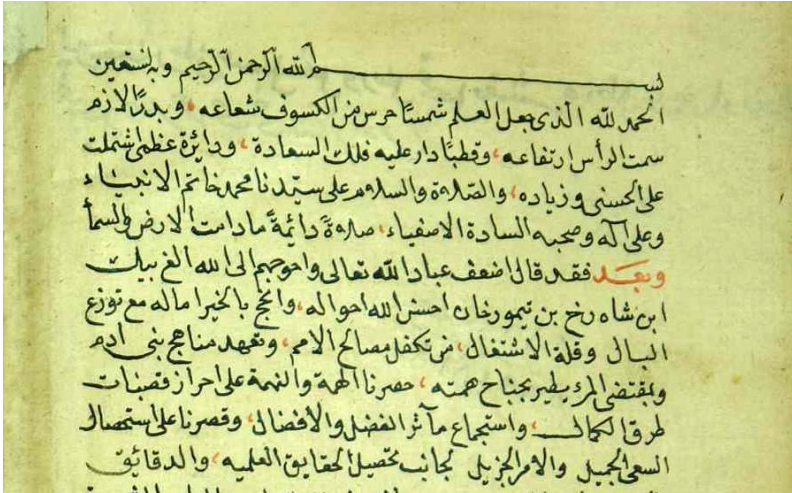 بسم الله الرحمن الرحيم وبه نستعين
الحمد لله الذى جعل العلم شمسًا حرس من الكسوف شعاعه، وبدرًا لازم
سمت الرأس ارتفاعه، وقطبًا دار عليه فلك السعادة، ودائرة عظمى اشتملت
على الحسنى وزياده، والصلاة والسلام على سيدنا محمد خاتم الانبياء
وعلى آله وصحبه السادة الاصفياء، صلاةً دائمةً ما دامت الارض والسما
وبعد فقد قال اضعف عباد الله تعالى واحوجهم الى الله الغ بيك
ابن شاه رخ بن تيمور خان احسن الله احواله، وانجح بالخير اماله مع توزع
البال وقلة الاشتغال، من تكفل مصالح الامم، وتعهد مناهج بنى ادم
وبمقتضى المرؤ يطير بجناح همته، حصرنا الهمة والنهمة على احراز قصبات
طرق الكمال، واستجماع مآثر الفضل والافضال، وقصرنا على استحصال
السعى الجميل والامر الجزيل لجانب تحصيل الحقايق العلميه، والدقائق